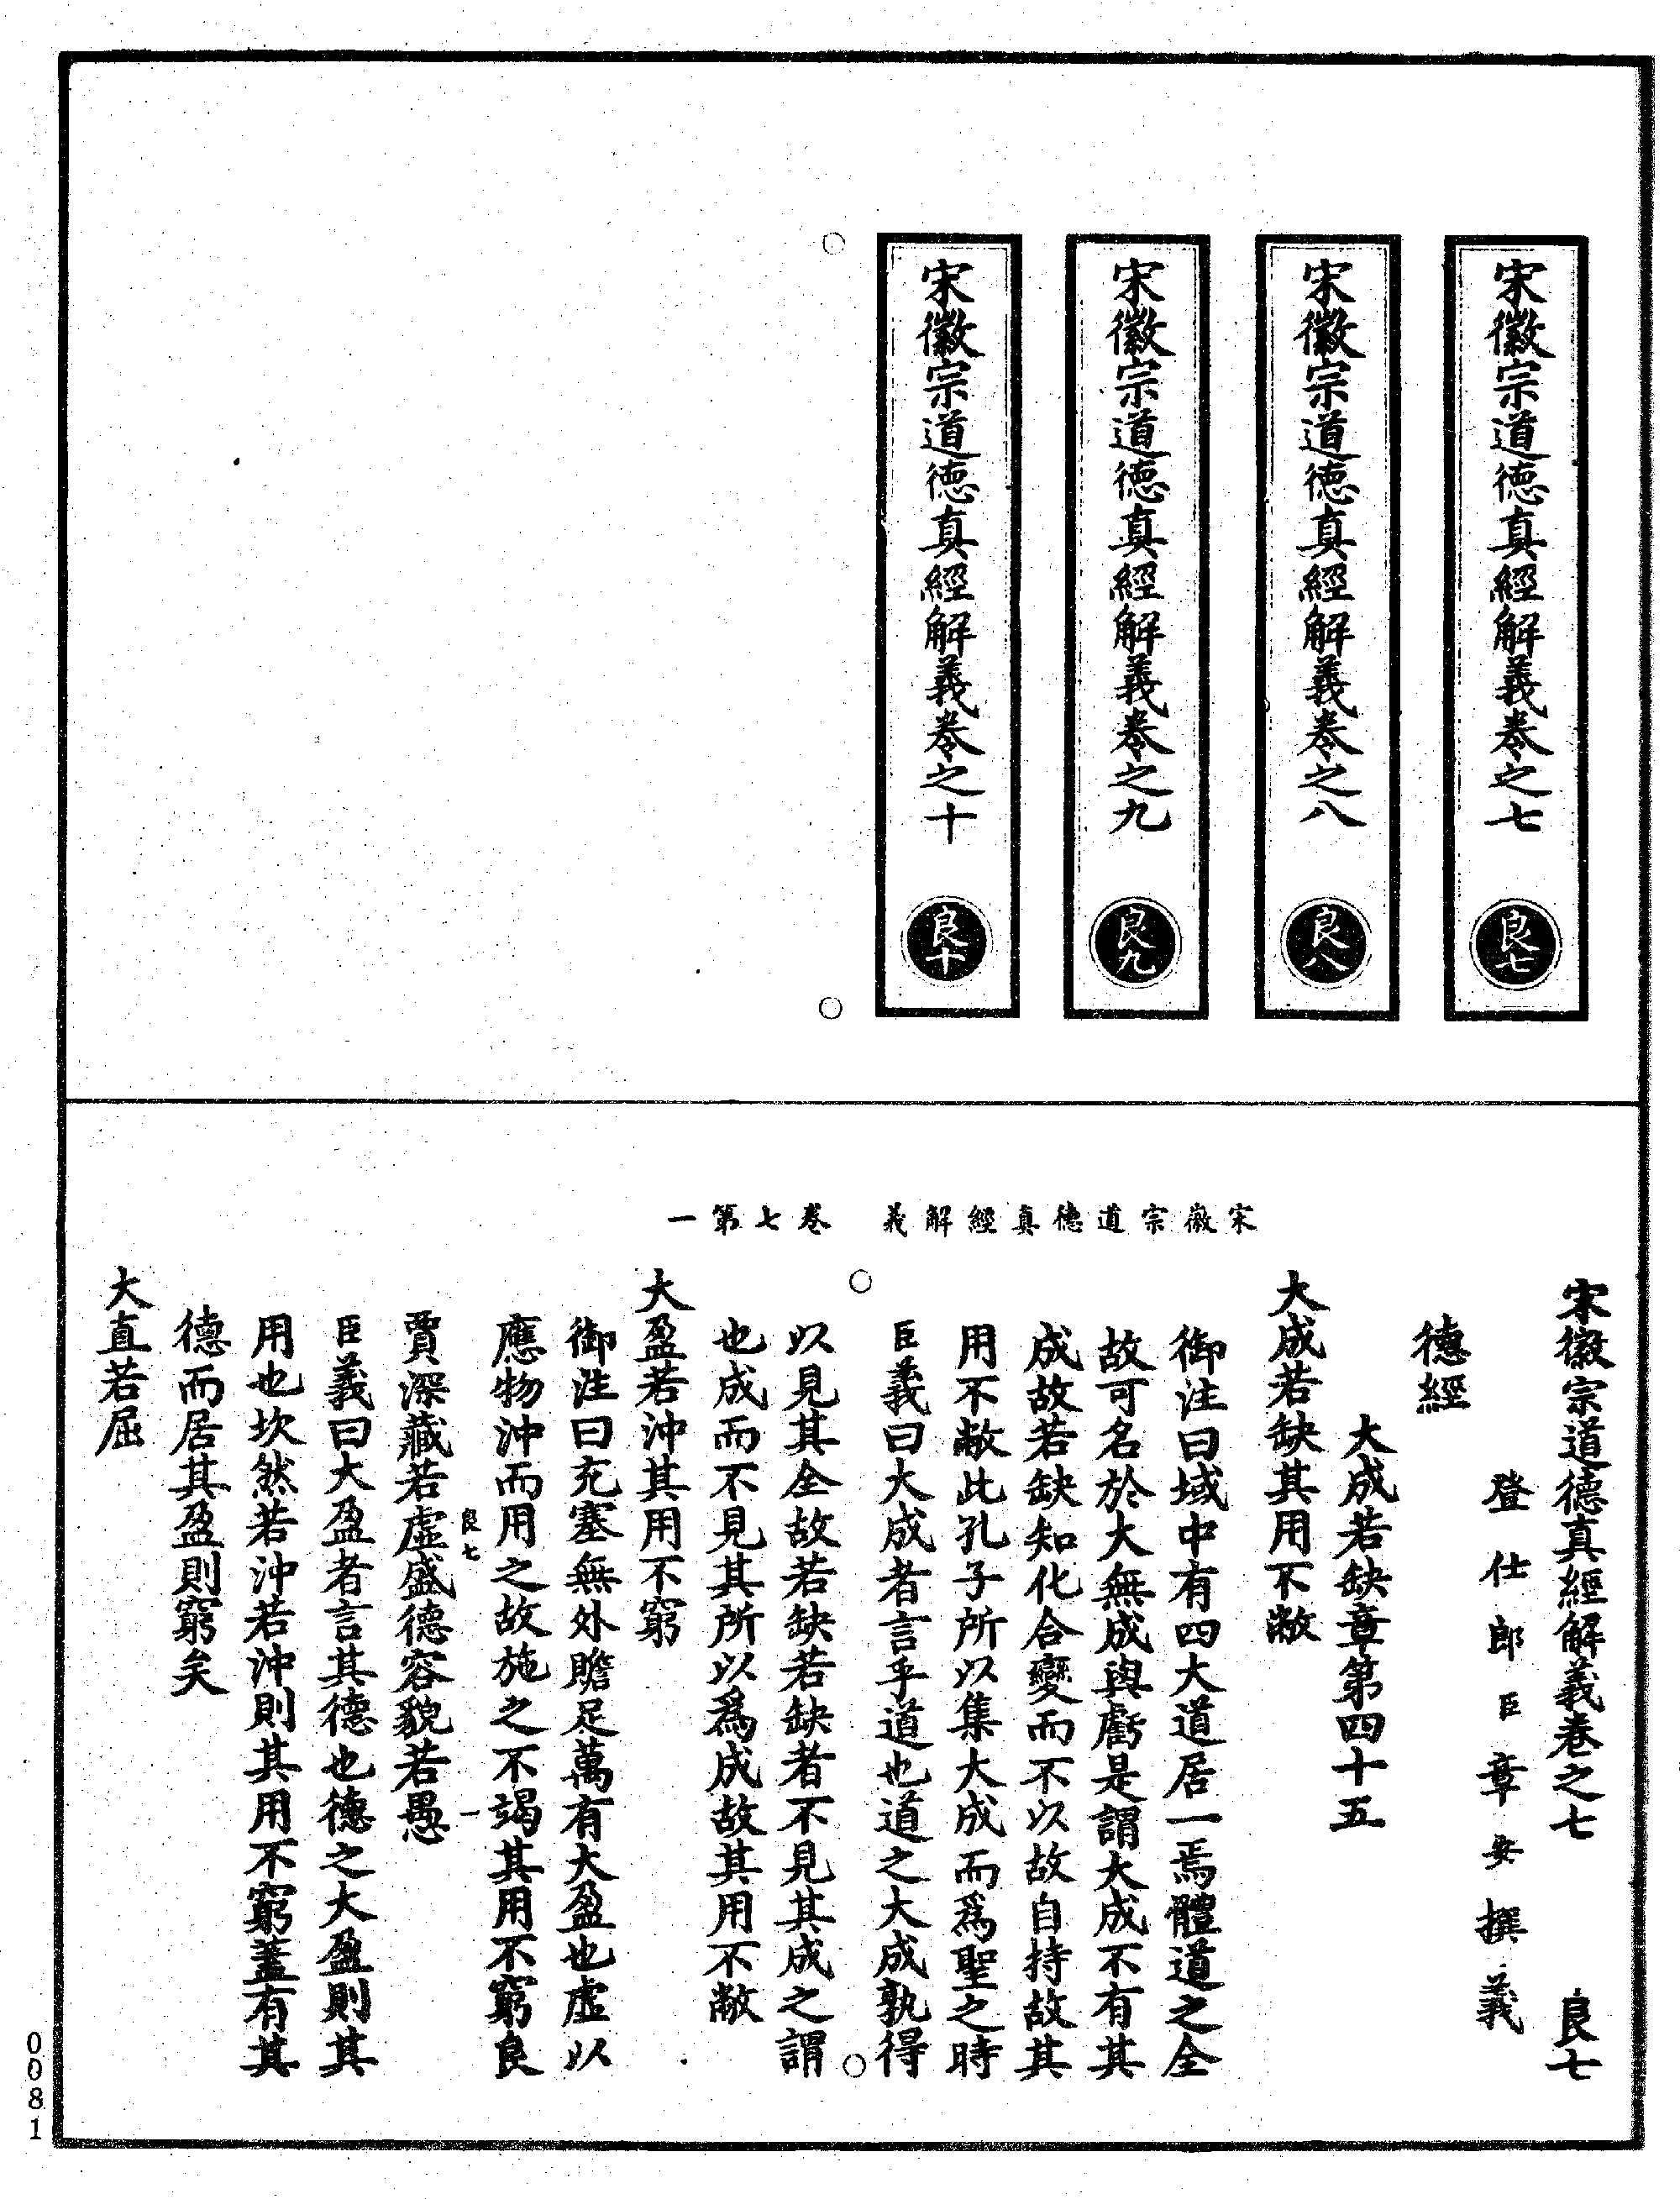 宋徽宗道德真經解義卷之七
良七
宋徽宗道德真經解義卷之八
良八
宋徽宗道德真經解義卷之九
良九
宋徽宗道德真經解義卷之十
良十
宋徽宗道德真經解義 卷七第一
宋徽宗道德真經解義卷之七 良七
登仕郎臣章安撰義
德經
大成若缺章第四十五
大成若缺其用不敝
御注曰域中有四大道居一焉體道之全
故可名於大無成與虧是謂大成不有其
成故若缺知化合變而不以故自持故其
用不敝此孔子所以集大成而爲聖之時
臣義曰大成者言乎道也道之大成孰得
以見其全故若缺若缺者不見其成之謂
也成而不見其所以爲成故其用不敝
大盈若沖其用不窮
御注曰充塞無外贍足萬有大盈也虛以
應物沖而用之故施之不竭其用不窮良
良七 一
賈深藏若虛盛德容貌若愚
臣義曰大盈者言其德也德之大盈則其
用也坎然若沖若沖則其用不窮蓋有其
德而居其盈則窮矣
大直若屈
0081